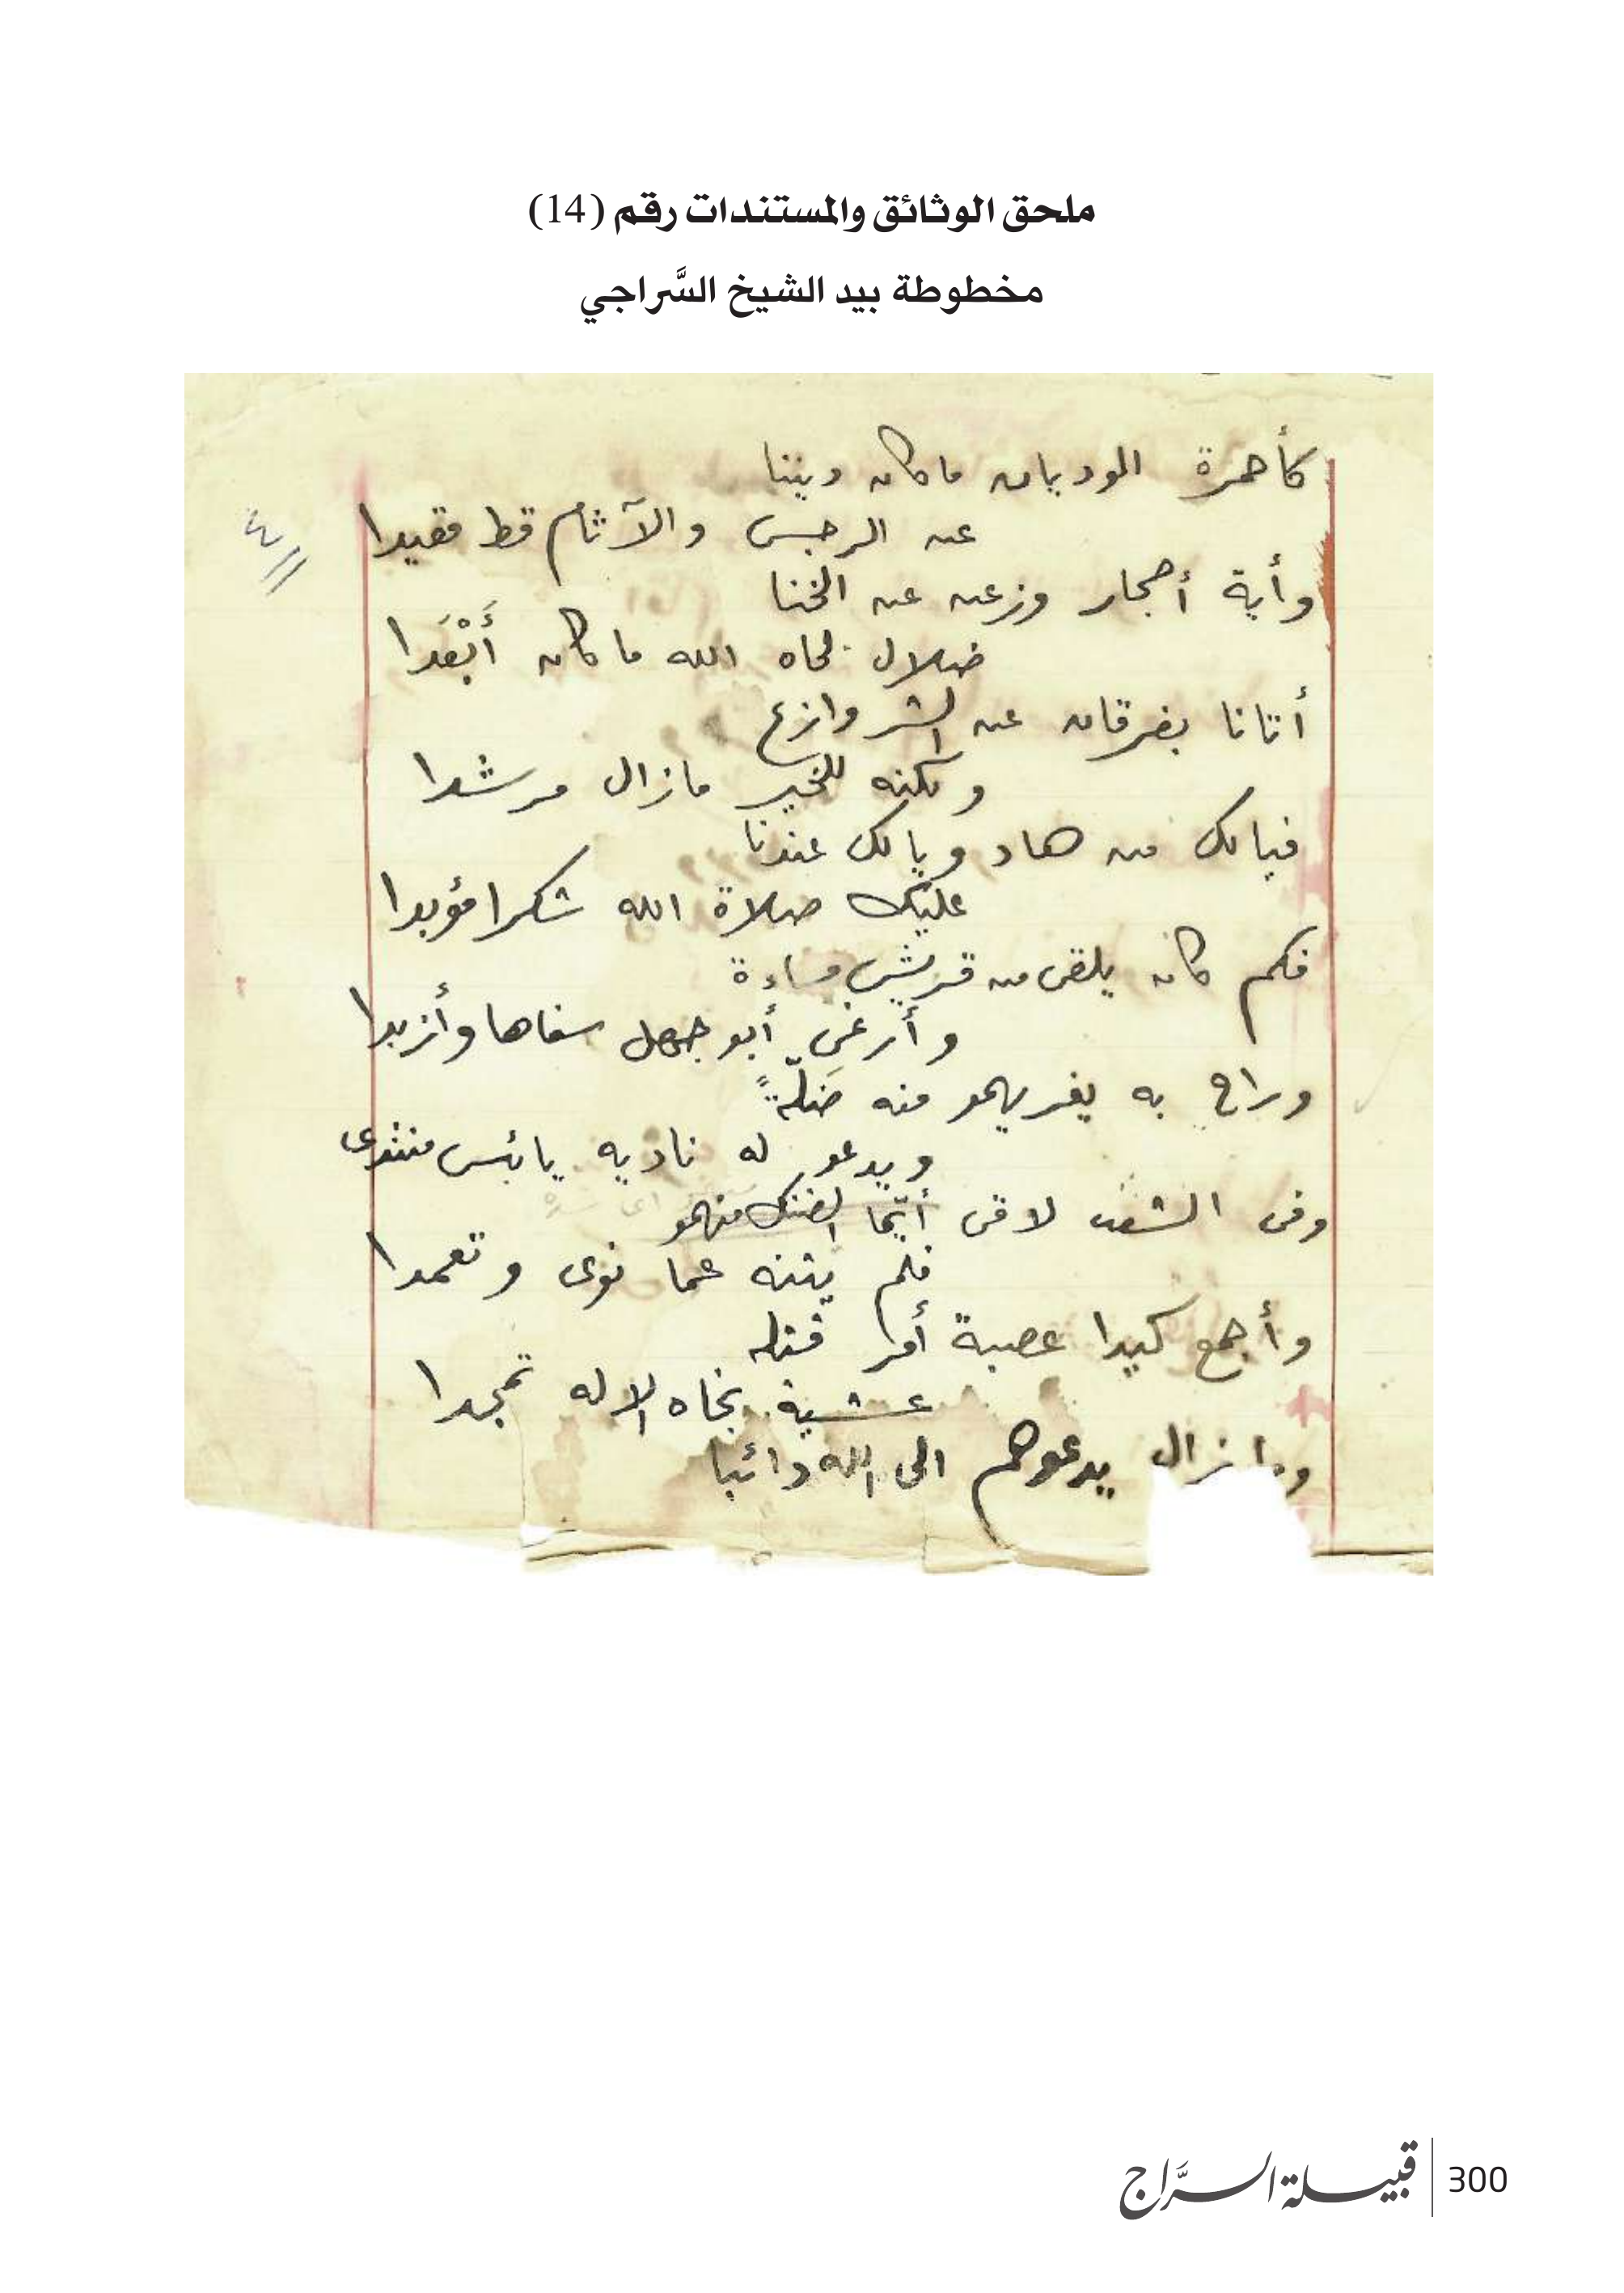 ملحق الوثائق والمستندات رقم (14)
مخطوطة بيد الشيخ السَّراجي
كأحمرة الوديان ما كان ديننا
عن الرجس والآثام قط مقيدا
وأية أحجار وزعن عن الخنا
ضلال لحاه الله ما كان أَبْعَدا
أتانا بفرقان عن الشر وازع
ولكنه للخير مازال مرشدا
فيالك من هاد ويالك عندنا
عليك صلاة الله شكرا مؤبدا
فكم كان يلقى من قريش مساءة
وأرغى أبو جهل سفاها وأزبدا
وراح به يغريهمو منه ضَلّةً
ويدعو له ناديه يا بئس منتدى
وفى الشعب لاقى أيّما الضنك منهمو
فلم يثنه عما نوى وتعمدا
وأجمع كيدا عصبة أمر قتله
عشية نجاه الاله تمجدا
ومازال يدعوهم الى الله دائبا
٤
300
قبيلة السَّراج